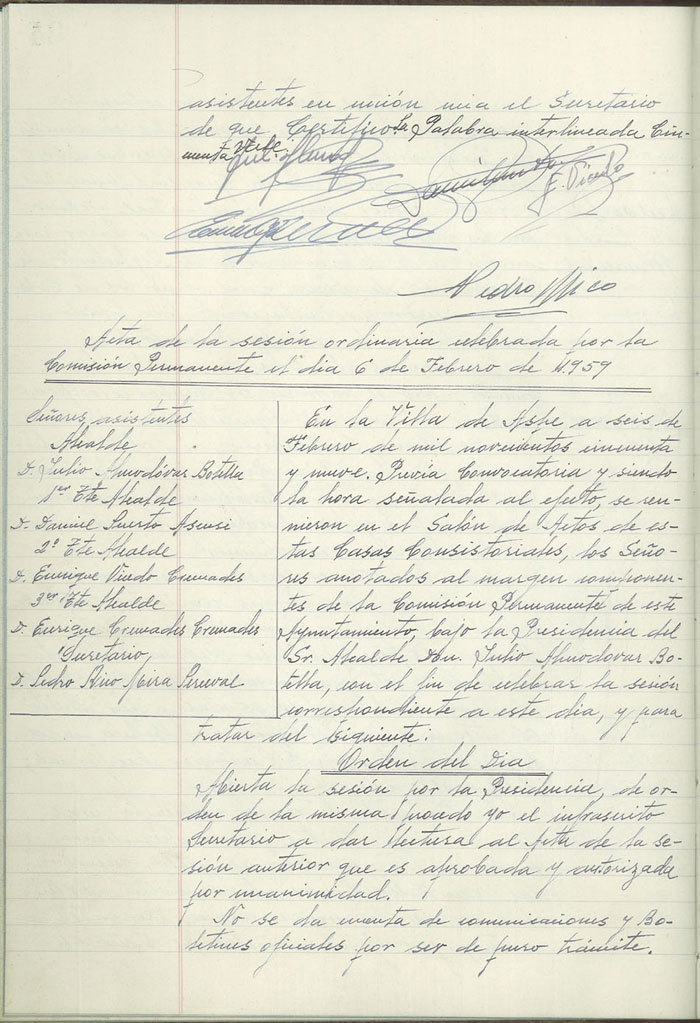 asistentes en unión mia el Suretario
de que Certifico La Palabra interlineada Cin-
cuenta Vale.
Pedro Mico
Acta de la sesión ordinaria celebrada por la
Comisión Permanente el dia 6 de Febrero de 1.959
Señores asistentes
Alcalde
D. Julio Almodóvar Botella
1er Tte Alcalde
D. Daniel Puerto Asensi
2º Tte Alcalde
D. Enrique Viedo Cremades
3er Tte Alcalde
D. Enrique Cremades Cremades
Suretario,
D. Pedro Rico Mira Perceval
En la Villa de Aspe a seis de
Febrero de mil novecientos cincuenta
y nueve. Previa Convocatoria y siendo
la hora señalada al efecto, se reu-
nieron en el Salón de Actos de es-
tas Casas Consistoriales, los Seño-
res anotados al margen componen-
tes de la Comisión Permanente de este
Ayuntamiento, bajo la Presidencia del
Sr. Alcalde Don. Julio Almodovar Bo-
tella, con el fin de celebrar la sesión
correspondiente a este dia, y para
tratar del siguiente:
Orden del Dia
Abierta la sesión por la Presidencia, de or-
den de la misma procedo yo el infrascrito
Suretario a dar lectura al Acta de la se-
sión anterior que es aprobada y autorizada
por unanimidad.
No se da cuenta de comunicaciones y Bo-
letines oficiales por ser de puro trámite.